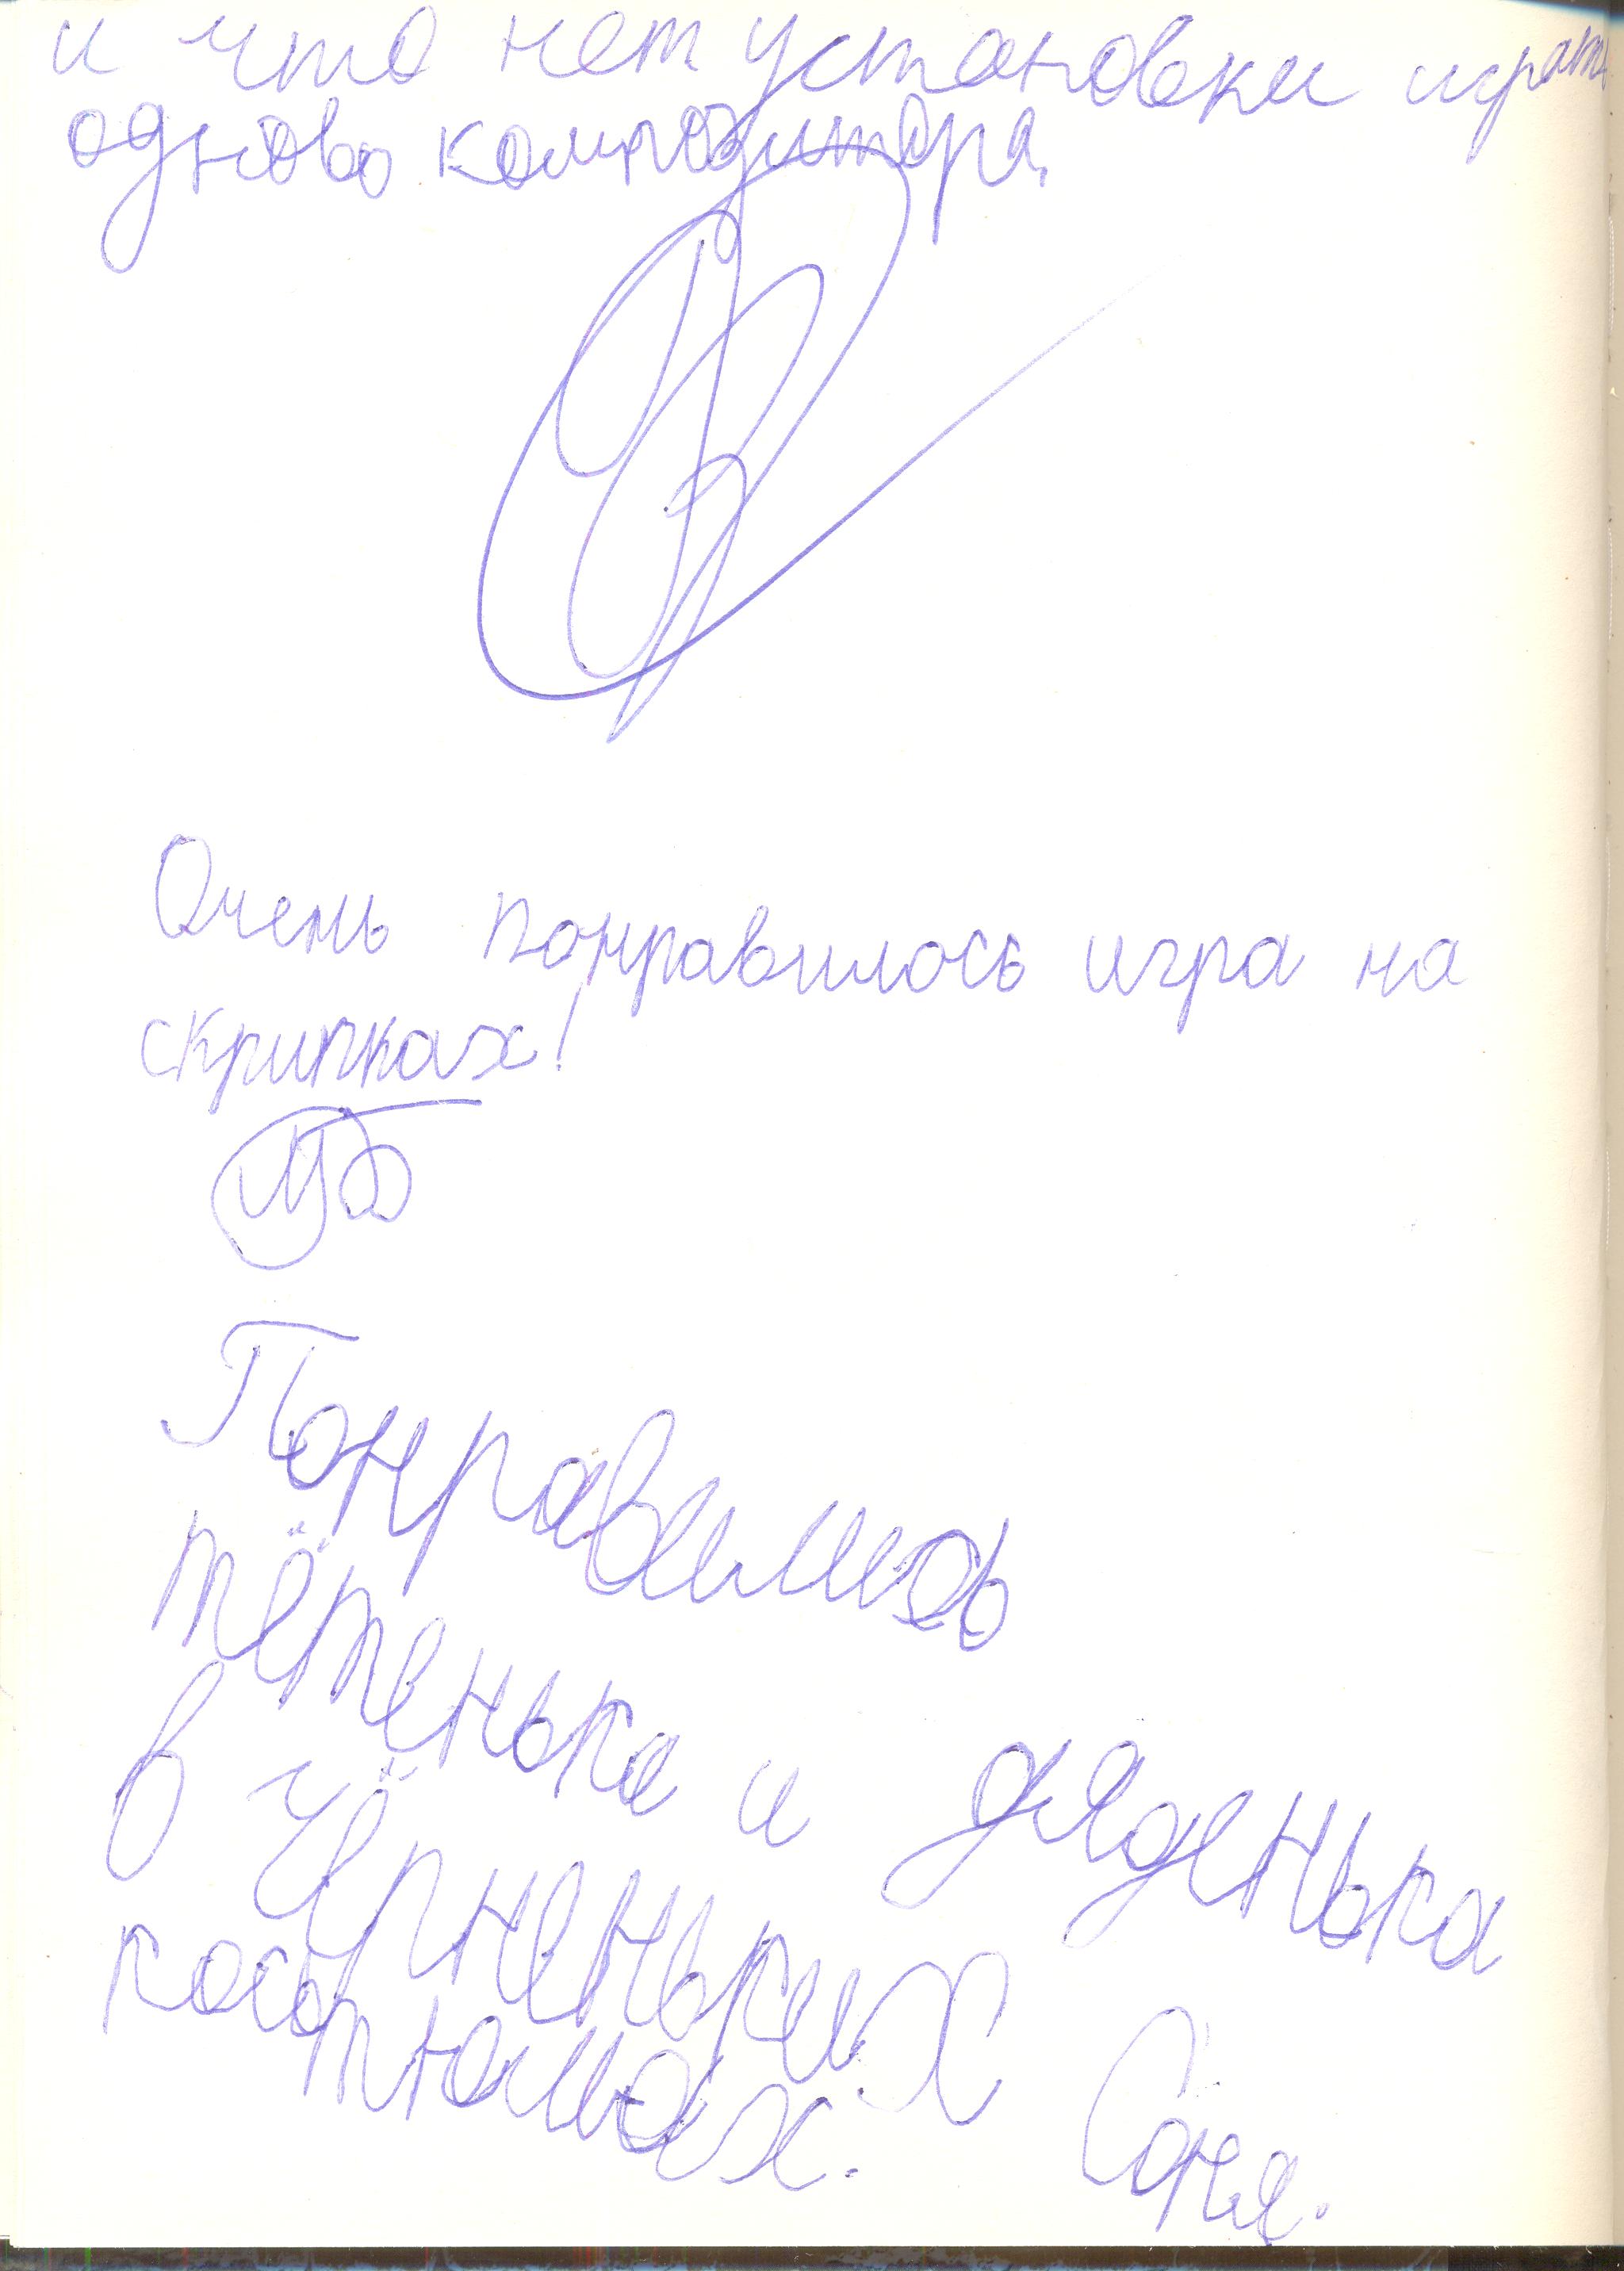 и что нет установки играть
одново композитора.
Очень понравилось игра на
скрипках!
Понравились
тётенька и дяденька
в чёрненьких
костюмах. Соня.